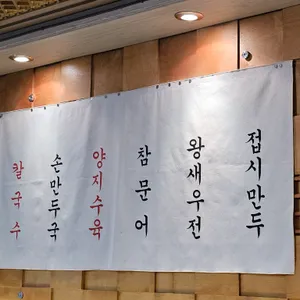 칼국수
손만두국
양지수육
참문어
왕새우전
접시만두